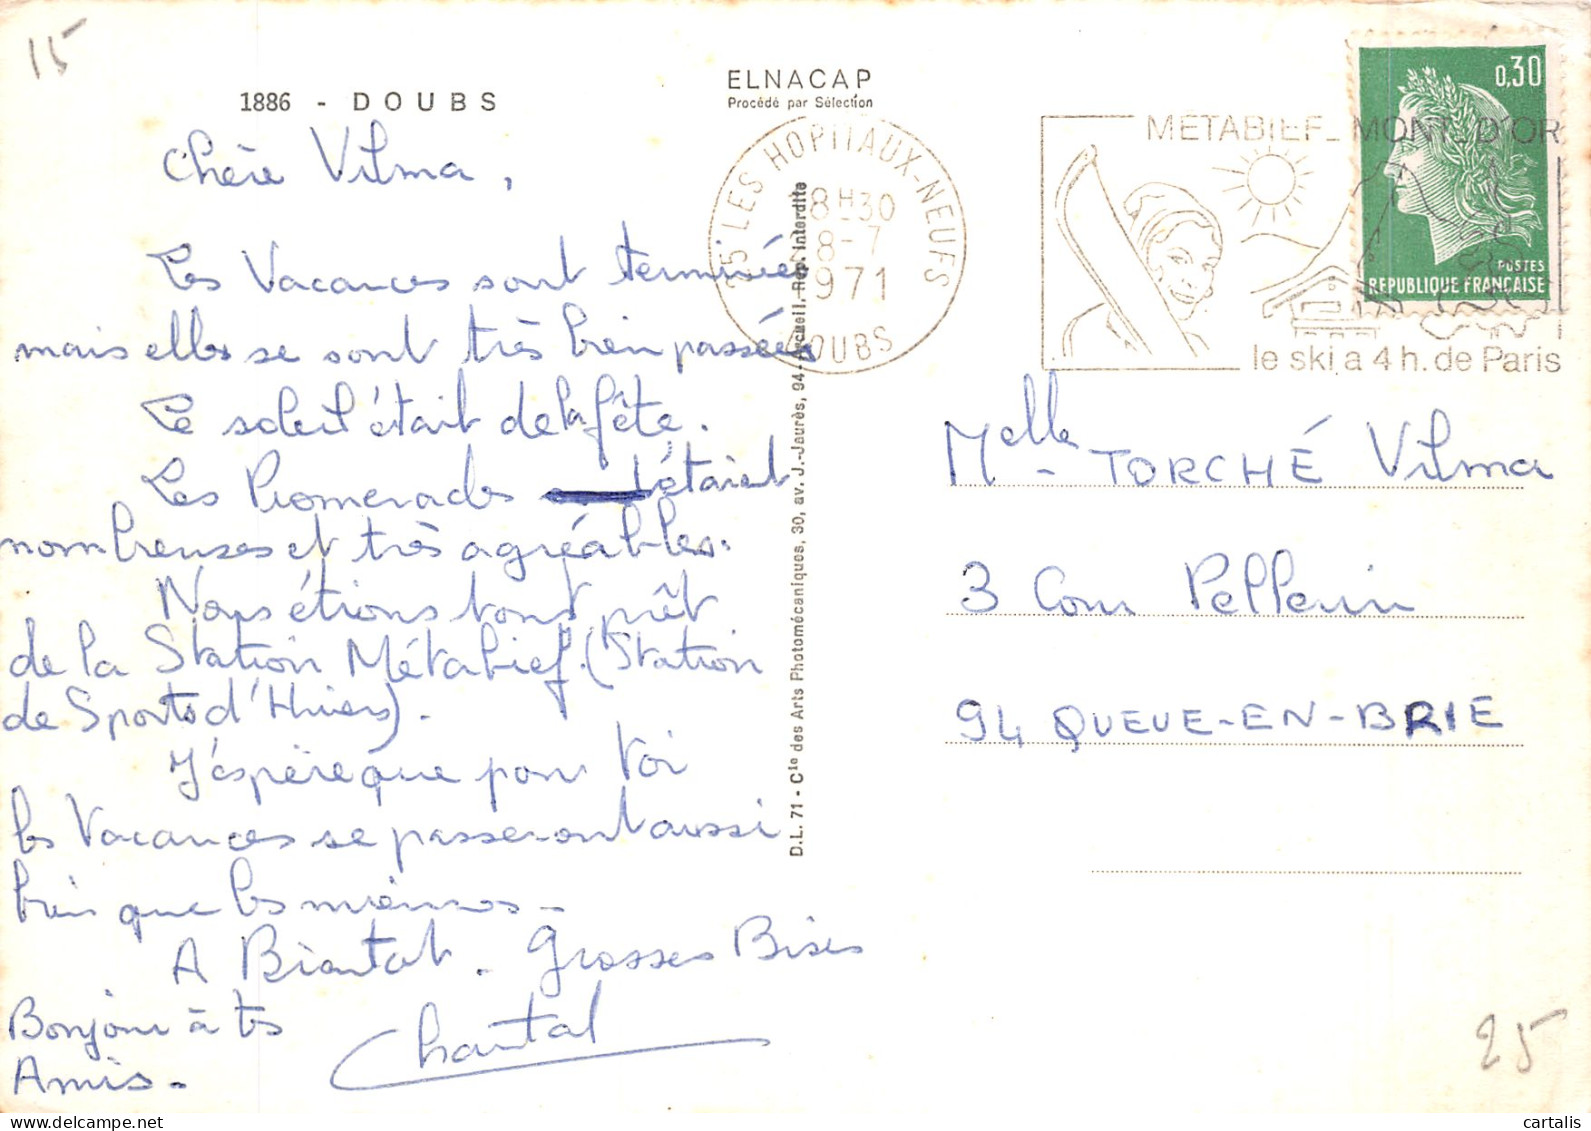 15
1886 - DOUBS
chère Vilma,
Les Vacances sont terminées
mais elles se sont très bien passées
Le soleil était de la fête.
Les Promenades étaient
nombreuses et très agréables.
Nous étions tout prêt
de la Station Métabief. (Station
de Sports d'Hivers).
J'éspère que pour Toi
les Vacances se passeront aussi
bien que les miennes -
A Biantot. Grosses Bises
Bonjour à tes
Amis -
Chantal
ELNACAP
Procédé par Sélection
25 LES HOPITAUX-NEUFS
18H30
8-7
1971
DOUBS
METABIEF_MONT D'OR
le ski a 4 h. de Paris
0,30
POSTES
REPUBLIQUE FRANÇAISE
D.L. 71 - Cie des Arts Photomécaniques, 30, av. J.-Jaurès, 94-Arcueil. Rep. interdite
Melle TORCHÉ Vilma
3 Cour Pellerin
94 QUEUE-EN-BRIE
25
cartalis